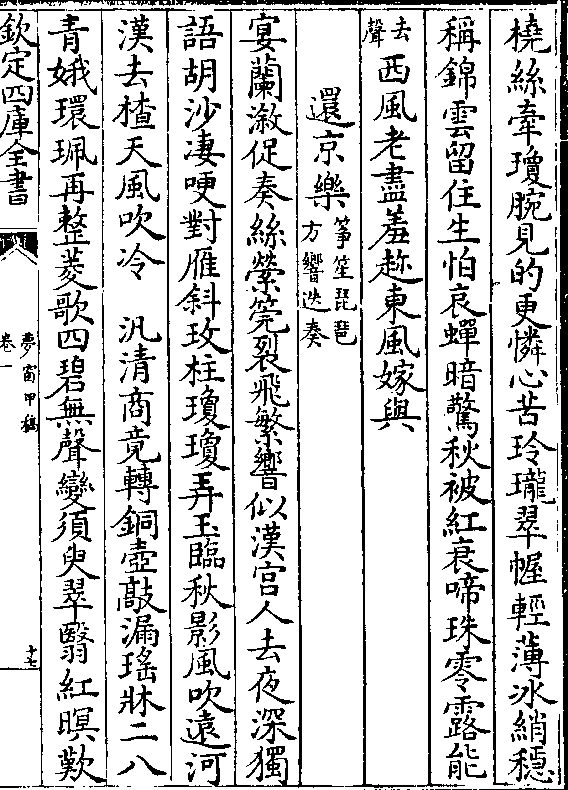 橈絲牽瓊腕見的更憐心苦玲瓏翠幄輕薄冰綃穏
稱錦雲留住生怕哀蟬暗驚秋被紅衰啼珠零露能
去聲西風老盡羞趂東風嫁與
還京樂箏笙琵琶方響迭奏
宴蘭漵促奏絲縈筦裂飛繁響似漢宫人去夜深獨
語胡沙凄哽對雁斜玫柱瓊瓊弄玉臨秋影風吹遠河
漢去楂天風吹冷　汎清商竟轉銅壺敲漏瑤牀二八
青娥環珮再整菱歌四碧無聲變須臾翠翳紅暝歎
欽定四庫全書
夢窗甲稿
卷一
十七